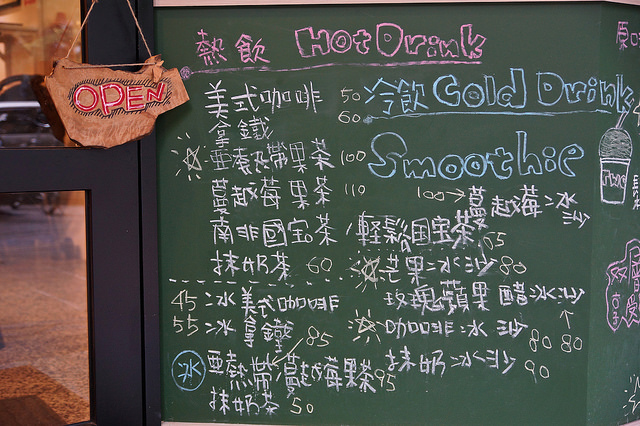 OPEN
熱飲 Hot Drink
美式咖啡 50
拿鐵 60
亞熱帶果茶 100
蔓越莓果茶 110
南非國宝茶
抹奶茶 60
45 冰美式咖啡
55 冰拿鐵
冰
亞熱帶 85
蔓越莓果茶 95
抹奶茶 50
冷飲 Cold Drink
Smoothie
100→蔓越莓冰沙
輕鬆国宝茶 65
芒果冰沙 80
玫瑰蘋果醋冰沙 80
咖啡冰沙 80
抹奶冰沙 90